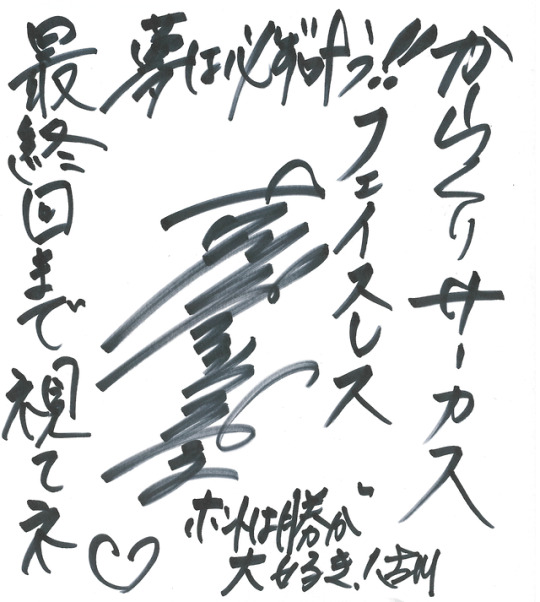 夢は必ず叶う!!
からくりサーカス
フェイスレス
最終回まで視てネ♡
ホントは勝が
大好き!古川